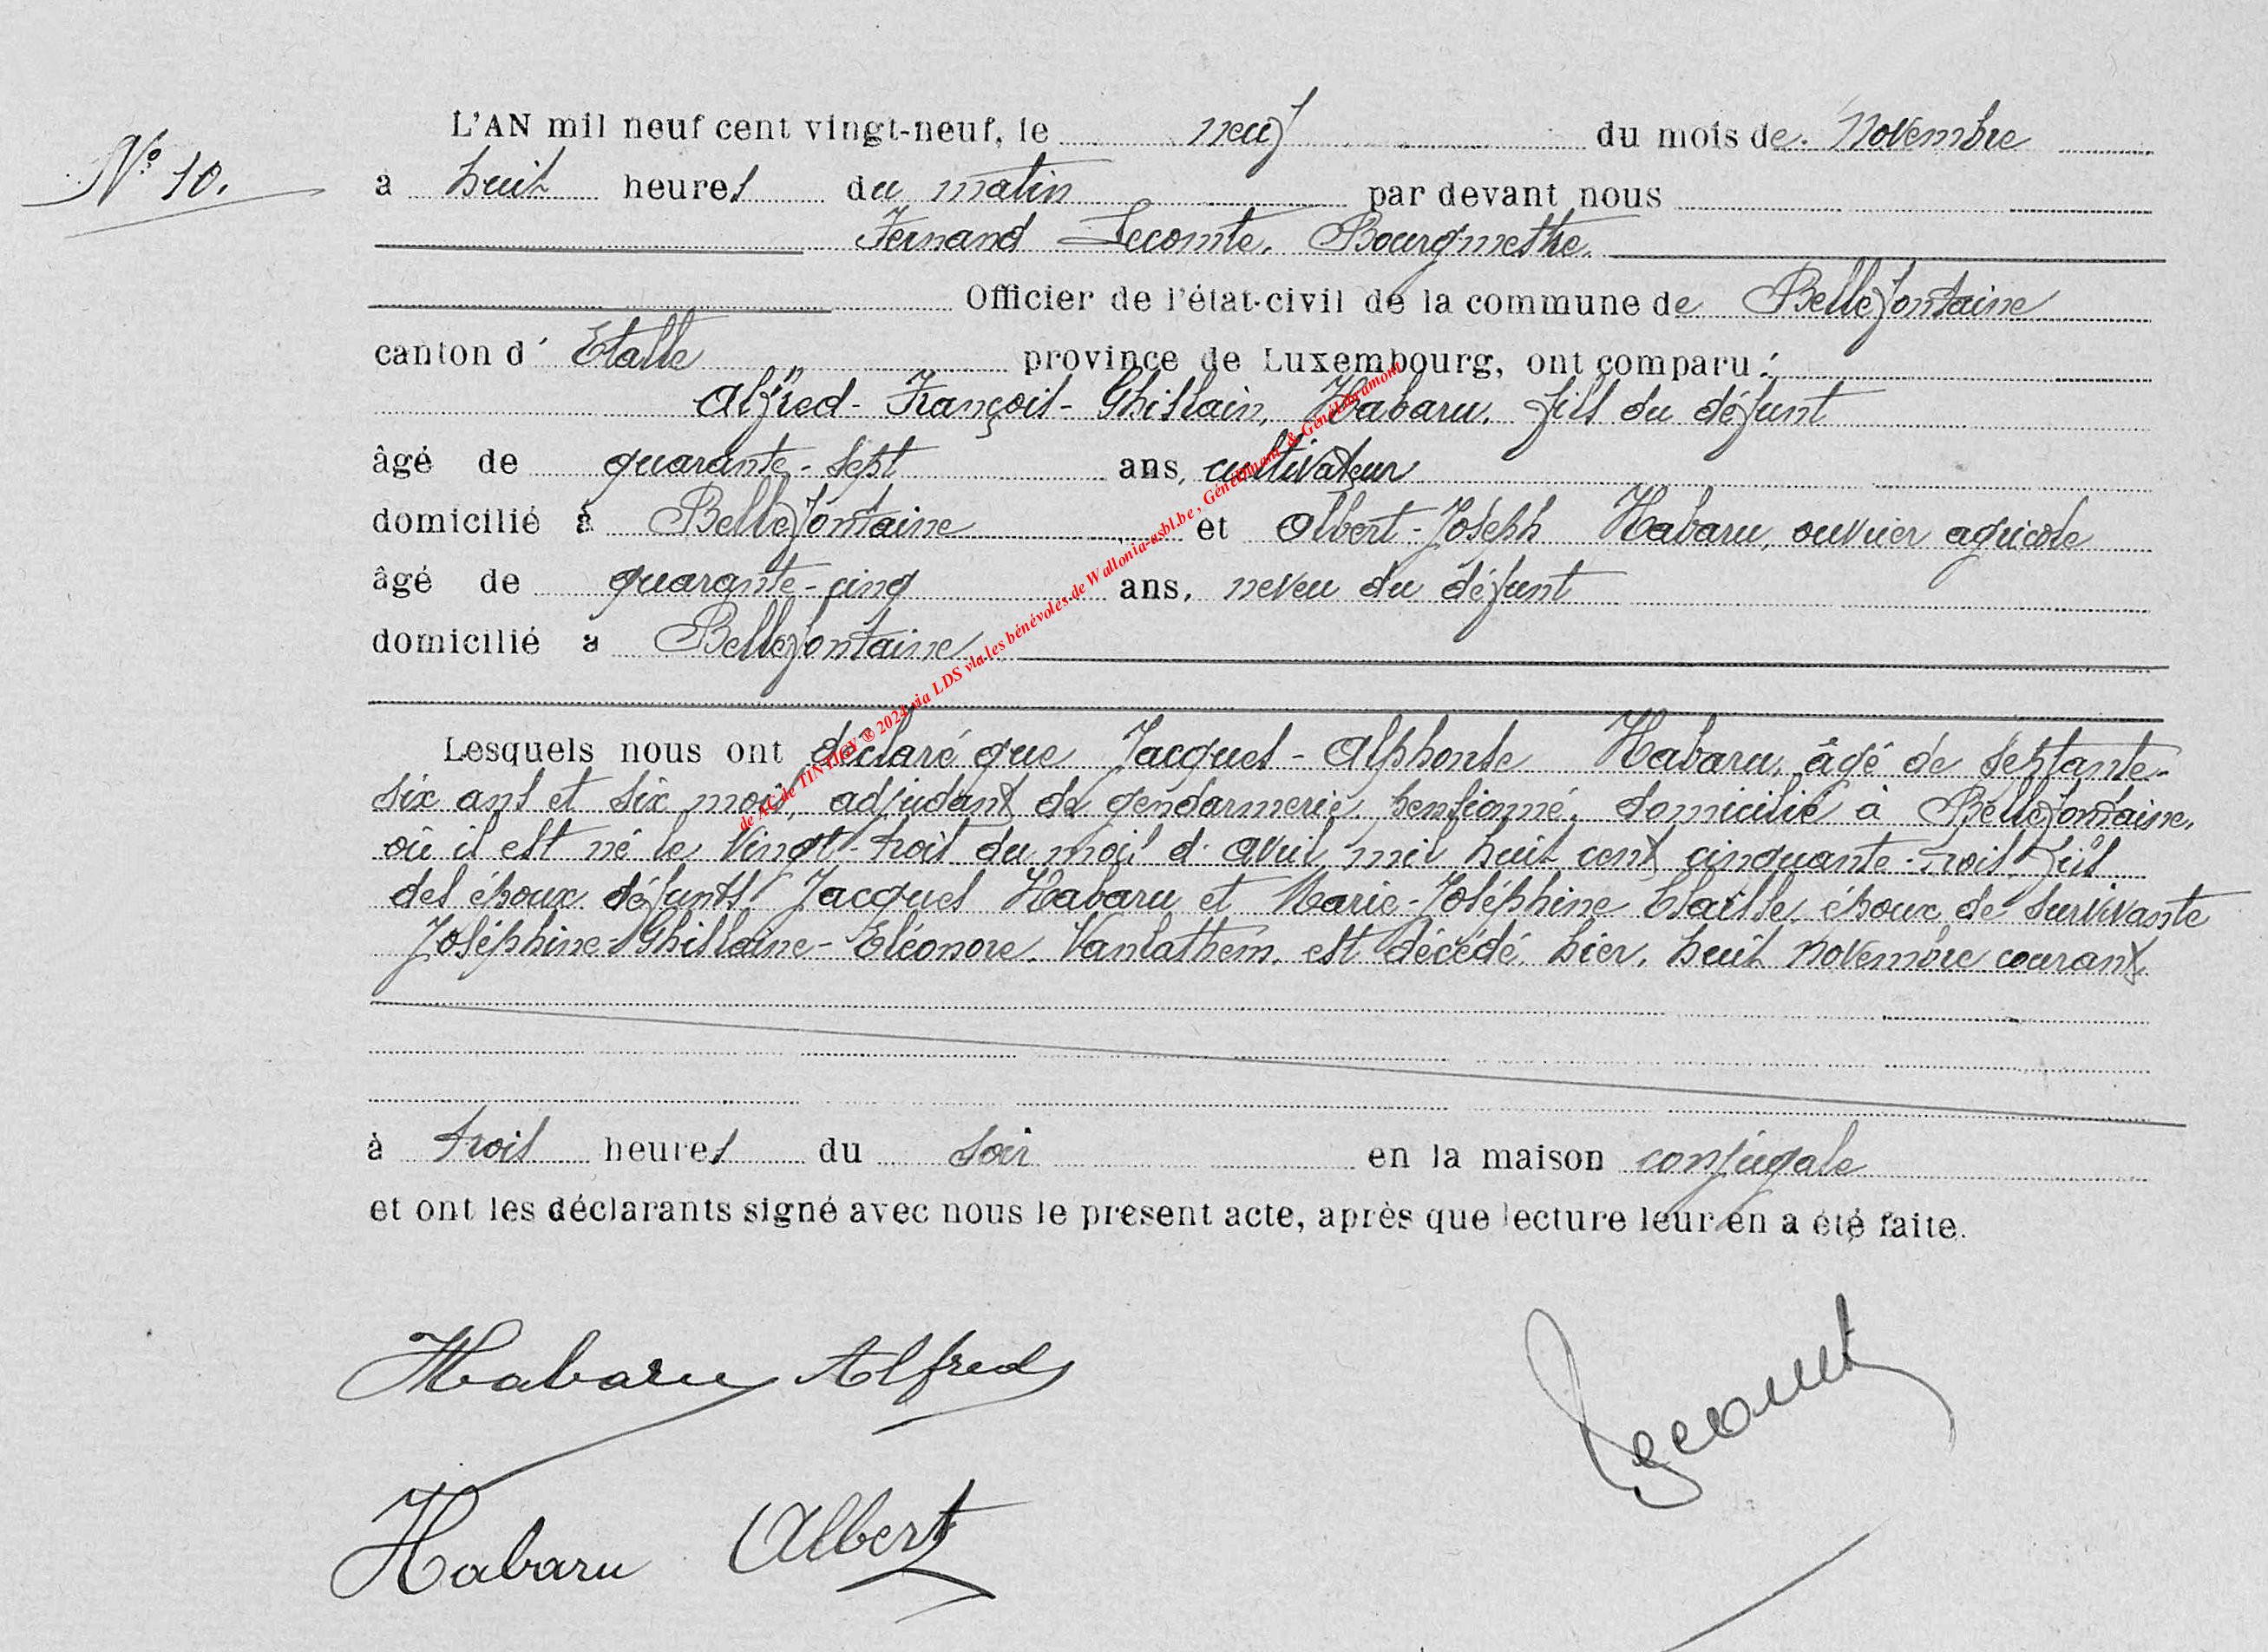 N° 10.
L'AN mil neuf cent vingt-neuf, le neuf du mois de Novembre
a huit heures du matin par devant nous
Fernand Lecomte, Bourgmestre
Officier de l'état-civil de la commune de Bellefontaine
canton d' Etalle province de Luxembourg, ont comparu :
Alfred-François-Ghislain, Habaru, fils du défunt
âgé de quarante-sept ans, cultivateur
domicilié à Bellefontaine et Albert-Joseph Habaru, ouvrier agricole
âgé de quarante-cinq ans, neveu du défunt
domicilié a Bellefontaine
Lesquels nous ont déclaré que Jacques-Alphonse Habaru, âgé de septante-
six ans et six mois, adjudant de gendarmerie pensionné, domicilié à Bellefontaine,
où il est né le vingt-trois du mois d'avril mil huit cent cinquante-trois, fils
des époux défunts Jacques Habaru et Marie-Joséphine Claisse, époux de survivante
Joséphine-Ghislaine-Eléonore, Vanlathem, est décédé, hier, huit novembre courant,
à trois heures du soir en la maison conjugale
et ont les déclarants signé avec nous le present acte, après que lecture leur en a été faite.
Habaru Alfred
Lecomte
Habaru Albert
de AC de TINTIGY ® 2024 via LDS via les bénévoles de Wallonia-asbl.be, Généamont & Généalibramont